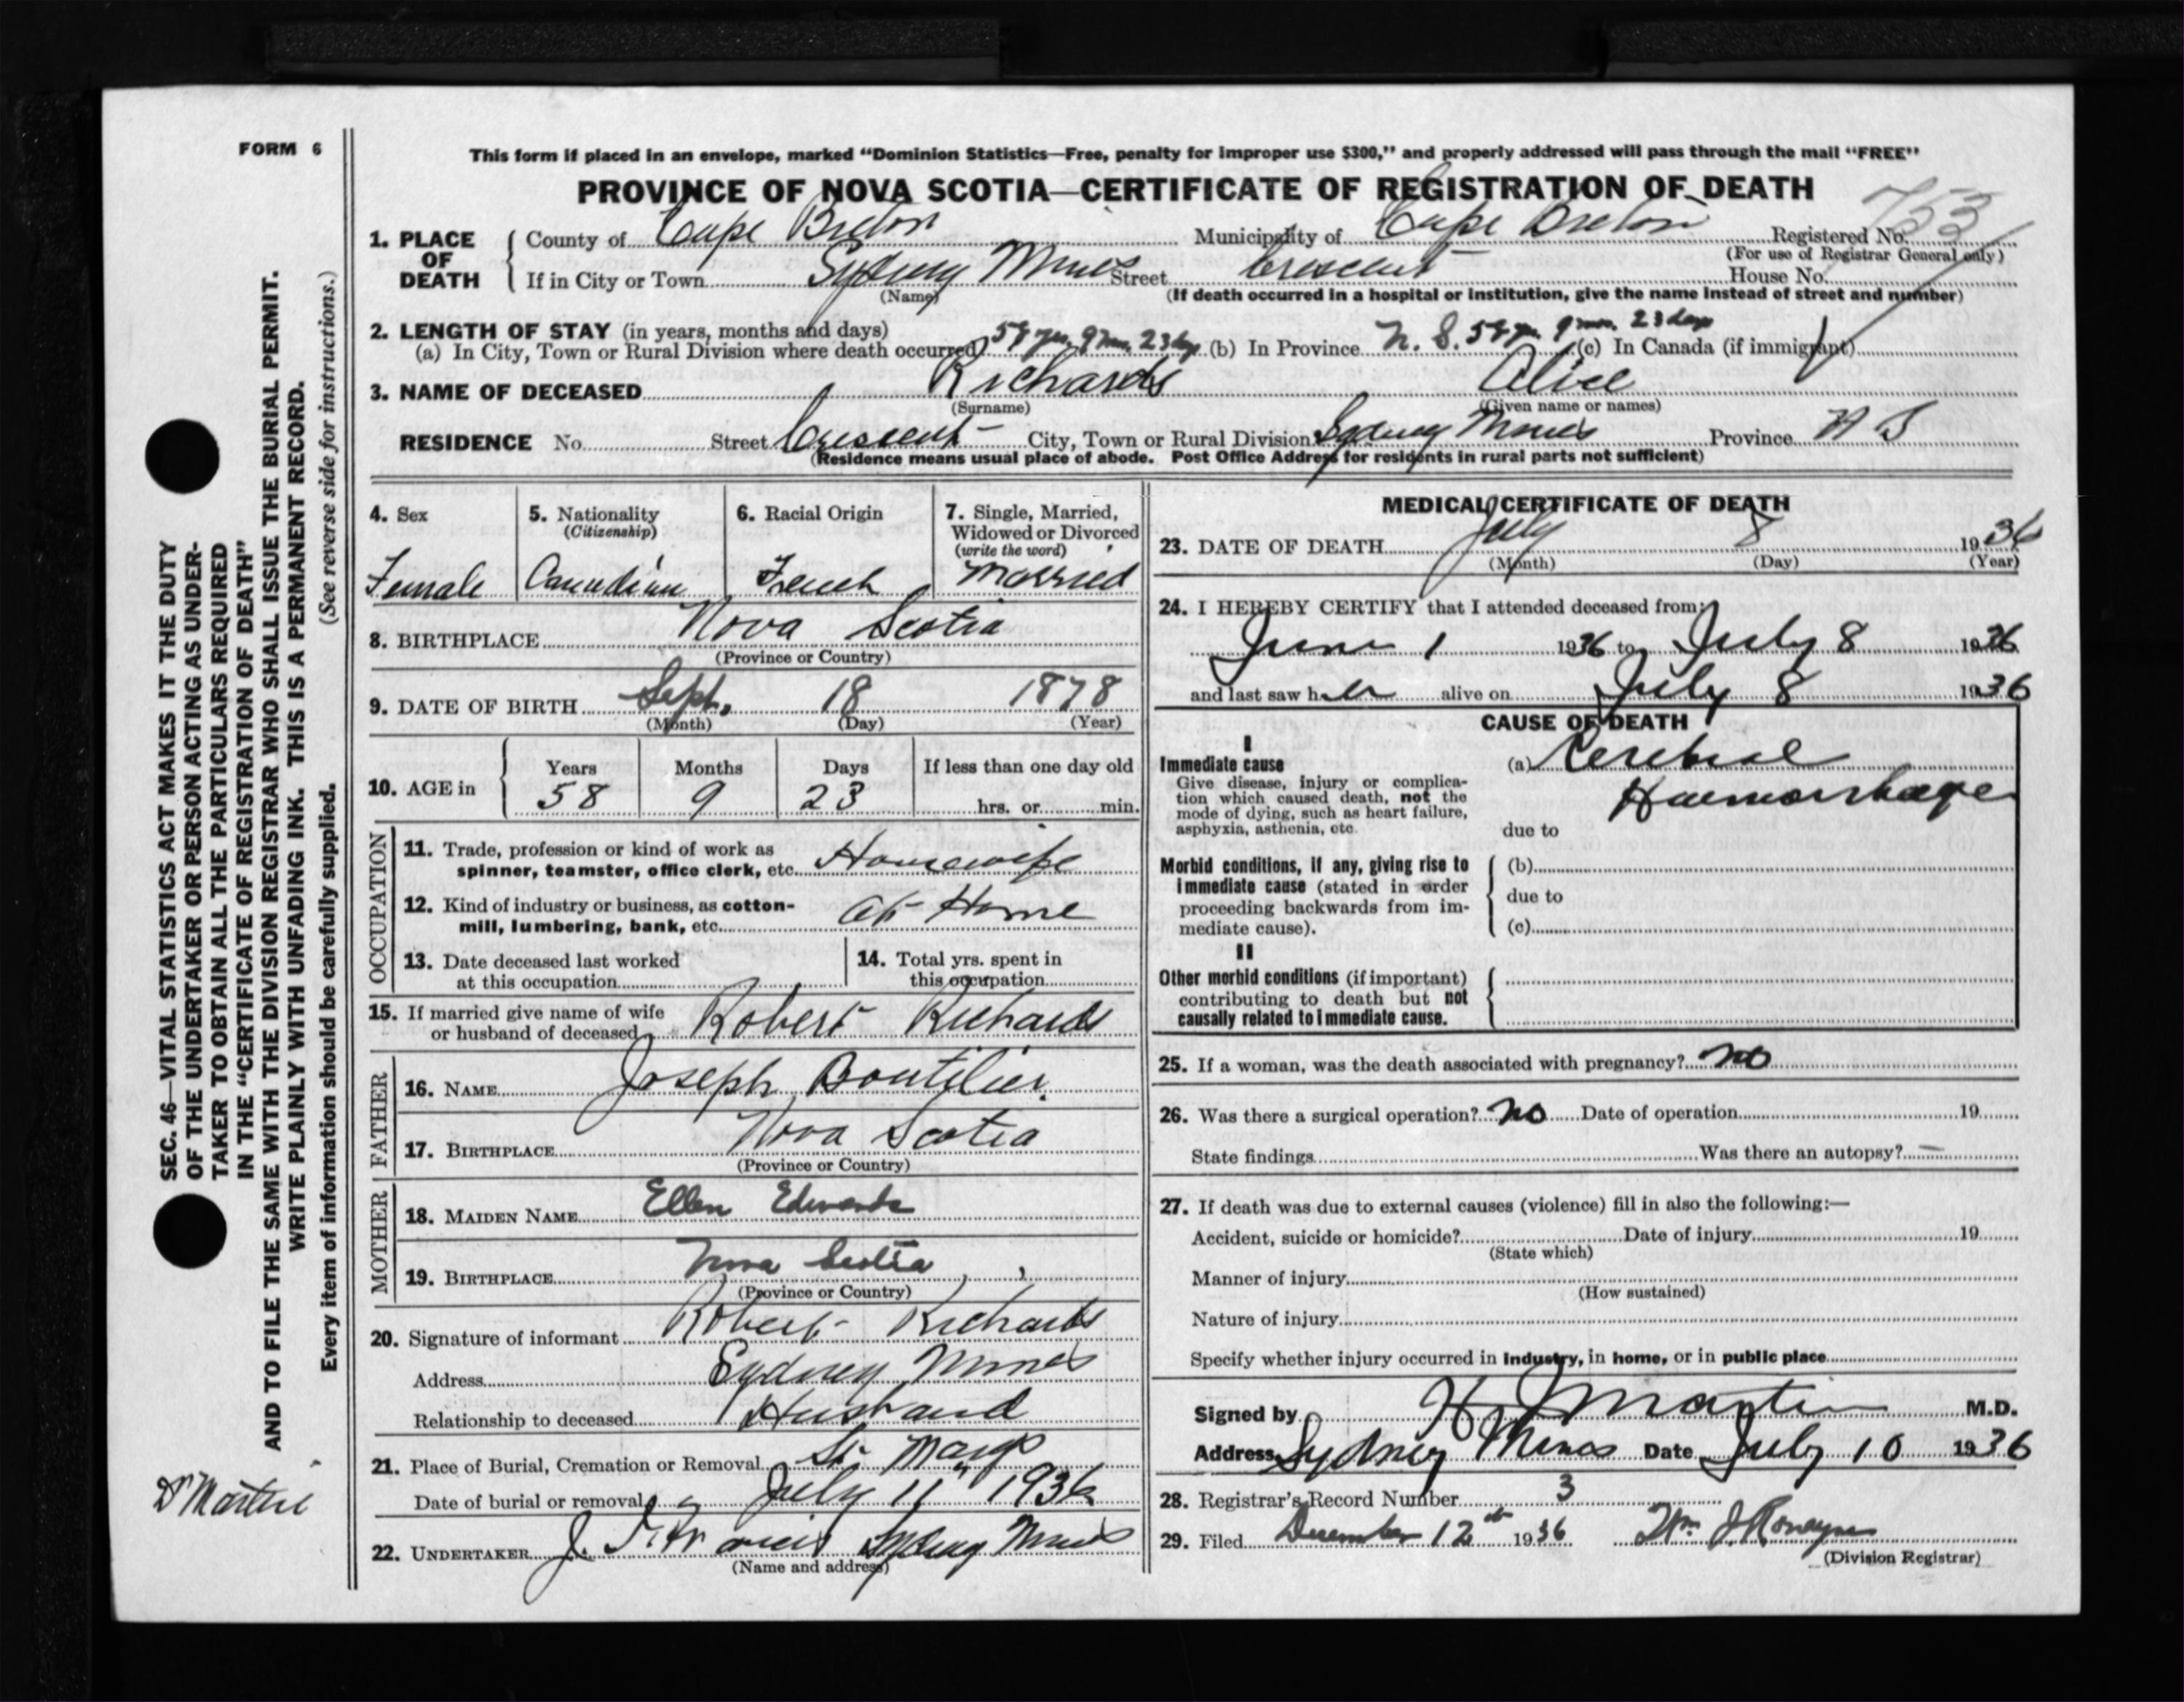 FORM 6
This form if placed in an envelope, marked “Dominion Statistics—Free, penalty for improper use $300,” and properly addressed will pass through the mail “FREE”
PROVINCE OF NOVA SCOTIA—CERTIFICATE OF REGISTRATION OF DEATH
753
1. PLACE OF DEATH { County of Cape Breton Municipality of Cape Breton Registered No.
(For use of Registrar General only)
If in City or Town Sydney Mines Street Crescent House No.
(Name) (If death occurred in a hospital or institution, give the name instead of street and number)
2. LENGTH OF STAY (in years, months and days)
(a) In City, Town or Rural Division where death occurred 58 yrs. 9 mo. 23 days (b) In Province N. S. 58 yrs 9 mos. 23 days (c) In Canada (if immigrant)
3. NAME OF DECEASED Richards Alice
(Surname) (Given name or names)
RESIDENCE No. Street Crescent City, Town or Rural Division Sydney Mines Province N S
(Residence means usual place of abode. Post Office Address for residents in rural parts not sufficient)
4. Sex Female
5. Nationality (Citizenship) Canadian
6. Racial Origin French
7. Single, Married, Widowed or Divorced (write the word) Married
8. BIRTHPLACE Nova Scotia
(Province or Country)
9. DATE OF BIRTH Sept. 18 1878
(Month) (Day) (Year)
10. AGE in { Years 58 Months 9 Days 23 If less than one day old hrs. or min.
OCCUPATION
11. Trade, profession or kind of work as spinner, teamster, office clerk, etc. Housewife
12. Kind of industry or business, as cotton-mill, lumbering, bank, etc. At Home
13. Date deceased last worked at this occupation
14. Total yrs. spent in this occupation
15. If married give name of wife or husband of deceased Robert Richards
FATHER
16. NAME Joseph Boutilier.
17. BIRTHPLACE Nova Scotia
(Province or Country)
MOTHER
18. MAIDEN NAME Ellen Edwards
19. BIRTHPLACE Nova Scotia
(Province or Country)
20. Signature of informant Robert Richards
Address Sydney Mines
Relationship to deceased Husband
21. Place of Burial, Cremation or Removal St. Marys
Date of burial or removal July 11" 1936
22. UNDERTAKER J. Sydney Mines
(Name and address)
MEDICAL CERTIFICATE OF DEATH
23. DATE OF DEATH July 8 1936
(Month) (Day) (Year)
24. I HEREBY CERTIFY that I attended deceased from:
June 1 1936 to July 8 1936
and last saw her alive on July 8 1936
CAUSE OF DEATH
I
Immediate cause (a) Cerebral Haemorrhage
Give disease, injury or complication which caused death, not the mode of dying, such as heart failure, asphyxia, asthenia, etc.
due to
Morbid conditions, if any, giving rise to immediate cause (stated in order proceeding backwards from immediate cause).
(b)
due to
(c)
II
Other morbid conditions (if important) contributing to death but not causally related to immediate cause.
25. If a woman, was the death associated with pregnancy? no
26. Was there a surgical operation? no Date of operation 19
State findings Was there an autopsy? —
27. If death was due to external causes (violence) fill in also the following:—
Accident, suicide or homicide? Date of injury 19
(State which)
Manner of injury
(How sustained)
Nature of injury
Specify whether injury occurred in industry, in home, or in public place
Signed by H J Martin M.D.
Address Sydney Mines Date July 10 1936
28. Registrar's Record Number 3
29. Filed December 12th 1936 Wm J Ronayne
(Division Registrar)
SEC. 46—VITAL STATISTICS ACT MAKES IT THE DUTY
OF THE UNDERTAKER OR PERSON ACTING AS UNDER-
TAKER TO OBTAIN ALL THE PARTICULARS REQUIRED
IN THE “CERTIFICATE OF REGISTRATION OF DEATH”
AND TO FILE THE SAME WITH THE DIVISION REGISTRAR WHO SHALL ISSUE THE BURIAL PERMIT.
WRITE PLAINLY WITH UNFADING INK. THIS IS A PERMANENT RECORD.
Every item of information should be carefully supplied. (See reverse side for instructions.)
Dr Martin